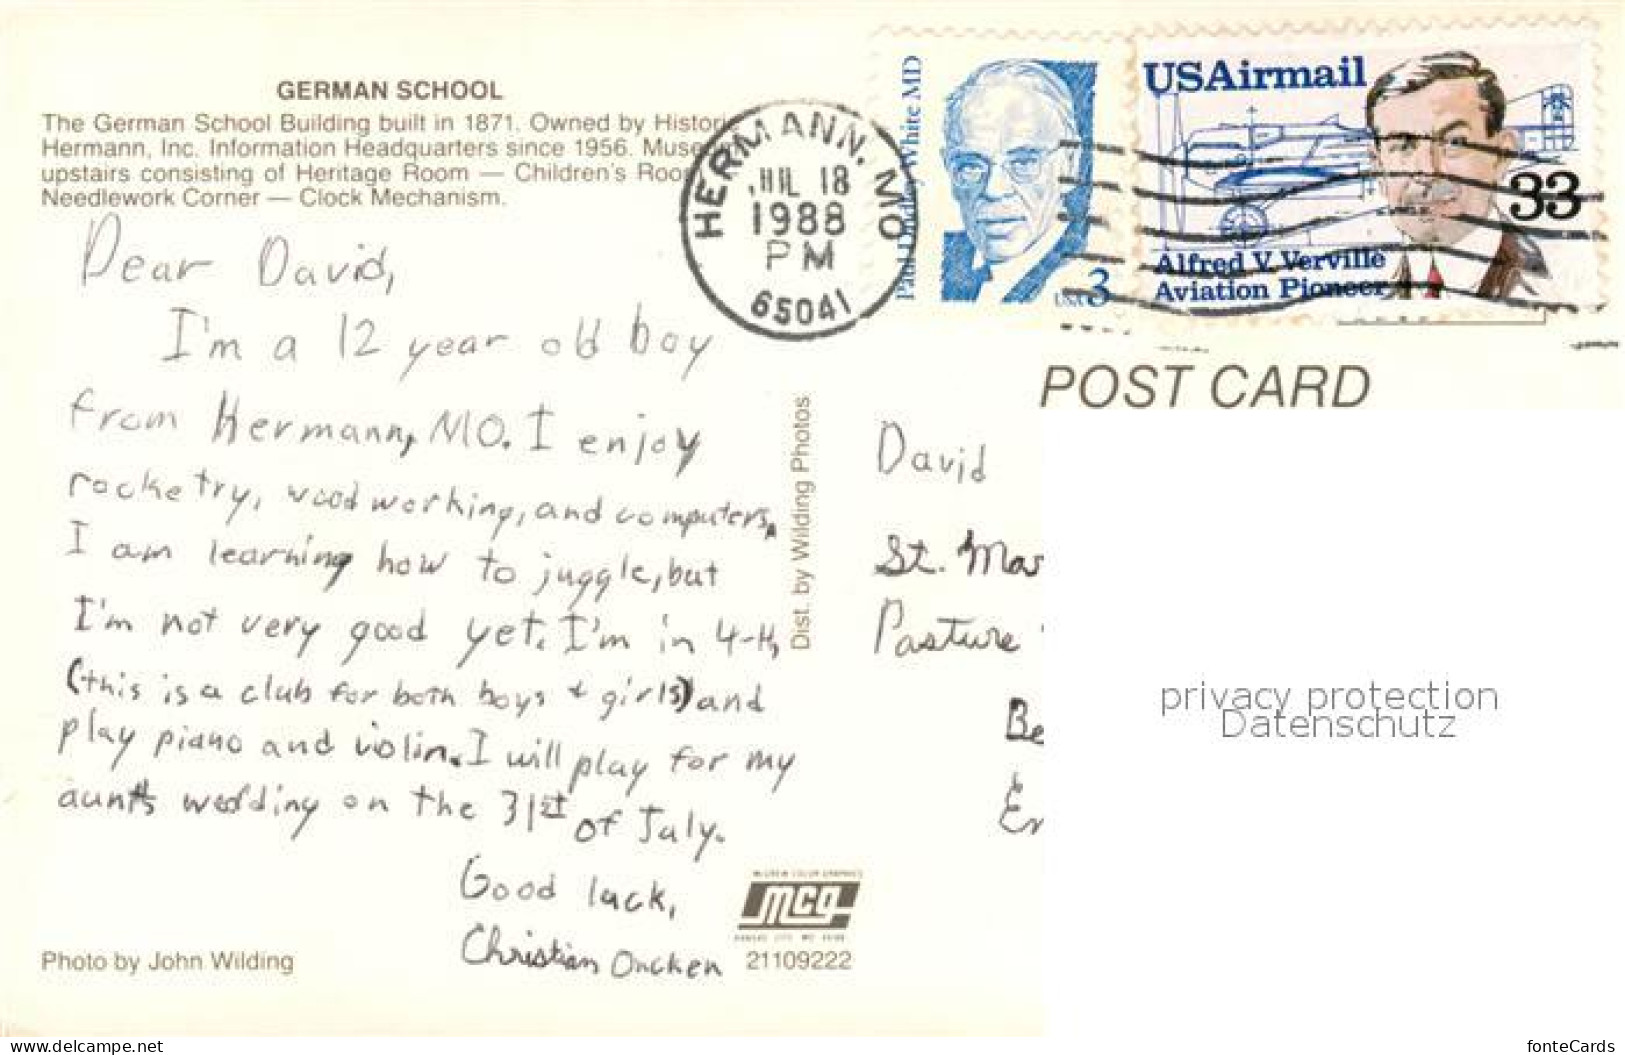 GERMAN SCHOOL
The German School Building built in 1871. Owned by Histori
Hermann, Inc. Information Headquarters since 1956. Muse
upstairs consisting of Heritage Room — Children's Roo
Needlework Corner — Clock Mechanism.
HERMANN, MO
JUL 18
1988
PM
65041
Paul Dudley White MD
USA 3
USAirmail
33
Alfred V. Verville
Aviation Pioneer
POST CARD
Dear David,
I'm a 12 year old boy
from Hermann, MO. I enjoy
rocketry, woodworking, and computers.
I am learning how to juggle, but
I'm not very good yet. I'm in 4-H,
(this is a club for both boys + girls) and
play piano and violin. I will play for my
aunts wedding on the 31st of July.
Good luck,
Christian Oncken
Dist. by Wilding Photos
David
St. Mar
Pasture
Be
En
privacy protection
Datenschutz
McGREW COLOR GRAPHICS
mcg
KANSAS CITY, MO
21109222
Photo by John Wilding
www.delcampe.net
fonteCards